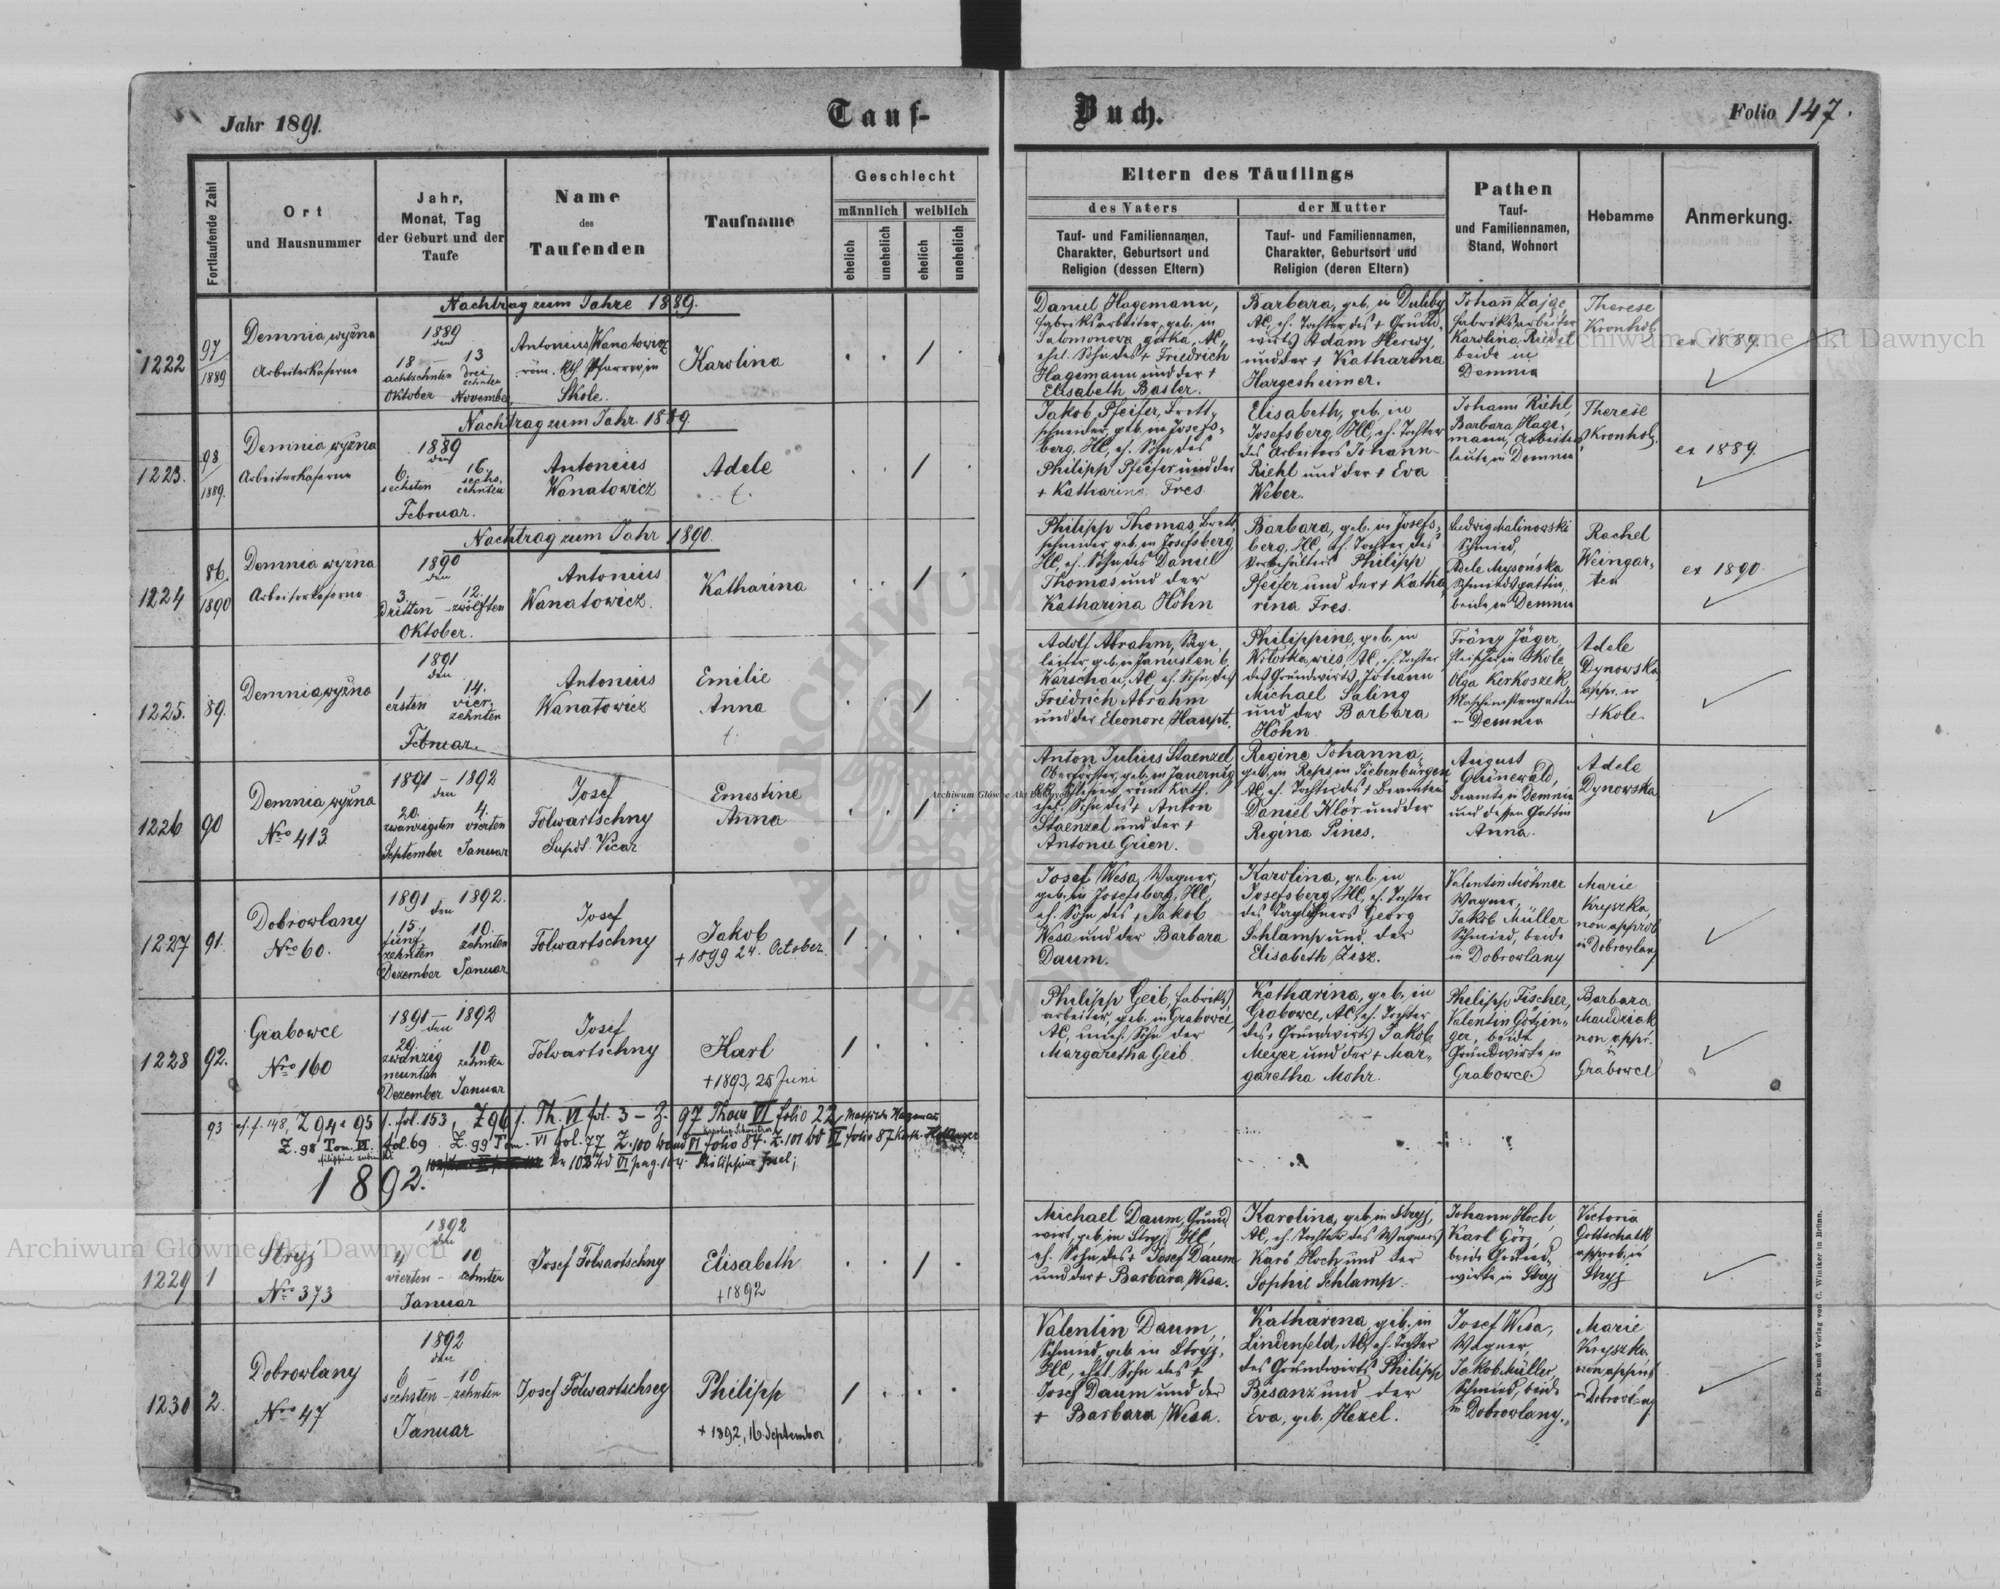 Jahr 1891.
Tauf-
Buch.
Folio 147.
Fortlaufende Zahl
Ort
und Hausnummer
Jahr,
Monat, Tag
der Geburt und der
Taufe
Name
des
Taufenden
Taufname
Geschlecht
männlich
weiblich
ehelich
unehelich
ehelich
unehelich
Eltern des Täuflings
des Vaters
der Mutter
Tauf- und Familiennamen,
Charakter, Geburtsort und
Religion (dessen Eltern)
Tauf- und Familiennamen,
Charakter, Geburtsort und
Religion (deren Eltern)
Pathen
Tauf-
und Familiennamen,
Stand, Wohnort
Hebamme
Anmerkung.
Nachtrag zum Jahre 1889.
1222
97
1889
Demnia wyżna
Arbeiterkaserne
1889
den
18 — 13
achtzehnten drei
zehnten
Oktober November
Antonius Wanatowicz
röm. kth. Pfarrer in
Skole.
Karolina
Daniel Hagemann,
Fabriksarbeiter, geb. in
Salomonowa górka, AC,
ehel. Sohn des + Friedrich
Hagemann und der +
Elisabeth Basler.
Barbara, geb. in Duliby
AC, eh. Tochter des + Grund-
wirts Adam Herwy,
und der + Katharina
Hargesheimer.
Johann Zajge
Fabriksarbeiter
Karolina Riedel
beide in
Demnia
Therese
Kronholz
ex 1889
Nachtrag zum Jahr 1889.
1223.
98
1889.
Demnia wyżna
Arbeiterkaserne
1889
den
6. 16.
sechsten sechs-
zehnten
Februar.
Antonius
Wanatowicz
Adele
t.
Jakob Pfeifer, Brett-
schneider, geb. in Josefs-
berg, HC, eh. Sohn des
Philipp Pfeifer und der
+ Katharina Fres.
Elisabeth, geb. in
Josefsberg, HC, eh. Tochter
des Arbeiters Johann
Riehl und der + Eva
Weber.
Johann Riehl,
Barbara Hage-
mann, Arbeiters
leute, in Demnia
Therese
Kronholz
ex 1889
Nachtrag zum Jahr 1890.
1224
86.
1890
Demnia wyżna
Arbeiterkaserne
1890
den
3. — 12.
Dritten - zwölften
Oktober.
Antonius
Wanatowicz.
Katharina
Philipp Thomas, Brett-
schneider geb. in Josefsberg
HC, eh. Sohn des Daniel
Thomas und der
Katharina Höhn
Barbara, geb. in Josefs-
berg, HC, eh. Tochter des
Philipp
Pfeifer und der + Katha-
rina Fres.
Ludwig Malinowski
Schmied,
Adele Mysońska
Schmidsgattin,
beide in Demnia
Rachel
Weingar-
ten
ex 1890
1225.
89.
Demnia wyżna
1891
den
1 14.
ersten vier-
zehnten
Februar.
Antonius
Wanatowicz
Emilie
Anna
t.
Adolf Abrahm, Säge
leiter, geb. in
Warschau, AC, eh. Sohn des
Friedrich Abrahm
und der Eleonore Haupt.
Philippine, geb. in
AC, eh. Tochter
des Grundwirts Johann
Michael Saling
und der Barbara
Höhn.
Franz Jäger,
Fleischer in Skole
Olga Kerkoszek,
Maschinistengattin
in Demnia
Adele
Dynowska,
appr. in
Skole.
1226
90
Demnia wyżna
Nro 413
1891 - 1892
den
20. 4.
zwanzigsten vierten
September Januar
Josef
Folwartschny
Supdt. Vicar
Ernestine
Anna
Anton Julius Staenzel
Oberförster, geb. in Jauernig
röm. kath.
ehel. Sohn des + Anton
Staenzel und der +
Antonie Grien.
Regine Johanna,
geb. in Reps in Siebenbürgen
AC, eh. Tochter des + Beamten
Daniel Klör und der
Regina Pines.
August
Grünewald,
Beamte in Demnia
und dessen Gattin
Anna.
Adele
Dynowska
1227
91.
Dobrowlany
Nro 60.
1891 den 1892.
15. 10.
fünf zehnten
zehnten
Dezember Januar
Josef
Folwartschny
Jakob
+ 1899 24. October.
Josef Wesa, Wagner,
geb. in Josefsberg, HC,
eh. Sohn des + Jakob
Wesa und der Barbara
Daum.
Karolina, geb. in
Josefsberg, HC, eh. Tochter
des Taglöhners Georg
Schlamp und der
Elisabeth Zisz.
Valentin Möhner
Wagner,
Jakob Müller
Schmied, beide
in Dobrowlany
Marie
Kryszka,
non approb.
in Dobrowlany
1228
92.
Grabowce
Nro 160
1891 — 1892
den
29. 10.
zwanzig zehnten
neunten
Dezember Januar
Josef
Folwartschny
Karl
+ 1893, 25 Juni
Philipp Geib, Fabriks-
arbeiter, geb. in Grabowce,
AC, uneh. Sohn der
Margaretha Geib.
Katharina, geb. in
Grabowce, AC, eh. Tochter
des Grundwirts Jakob
Meyer und der + Mar-
garetha Mohr.
Philipp Fischer,
Valentin Götzin-
ger, beide
Grundwirte in
Grabowce
Barbara
Maudziak
non appr.
in
Grabowce
93 cf. f. 148, Z 94 e 95 f. fol. 153, Z 96 f. Th. VI fol. 3 - Z. 97 Thom VI folio 22, Mathilde Hagemann
Z. 98 Tom. VI. fol 69 Z. 99 Tom. VI fol. 77 Z. 100 Band VI folio 84. Z. 101 bd VI folio 87
Philippine Josel;
1892.
1229
1
Stryj
Nro 373
1892
den
4 10
vierten - zehnten
Januar
Josef Folwartschny
Elisabeth
+ 1892
Michael Daum, Grund
wirt, geb. in Stryj, HC,
eh. Sohn des + Josef Daum
und der + Barbara Wesa.
Karolina, geb. in Stryj,
AC, eh. Tochter des Wagners
Karl Hoch und der
Sophie Schlamp.
Johann Hoch,
Karl Görz,
beide Grund-
wirte in Stryj
Victoria
Gottschalk
approb. in
Stryj
1230
2.
Dobrowlany
Nro 47
1892
den
6 10
sechsten - zehnten
Januar
Josef Folwartschny
Philipp
+ 1892, 16 September
Valentin Daum,
Schmied, geb. in Stryj,
HC, ehl. Sohn des +
Josef Daum und der
+ Barbara Wesa.
Katharina, geb. in
Lindenfeld, AC, eh. Tochter
des Grundwirts Philipp
Bisanz und der
Eva, geb. Hexel.
Josef Wesa,
Wagner,
Jakob Müller,
Schmied, beide
in Dobrowlany.
Marie
Kryszka
non approb.
in Dobrowlany
Druck und Verlag von C. Winiker in Brünn.
Archiwum Główne Akt Dawnych
Archiwum Główne Akt Dawnych
Archiwum Główne Akt Dawnych